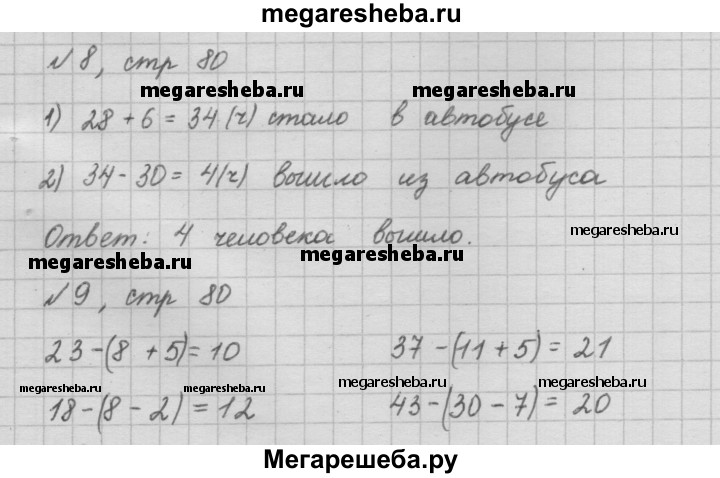 megaresheba.ru
№8, стр 80
megaresheba.ru megaresheba.ru
1) 28 + 6 = 34 (ч) стало в автобусе
2) 34 - 30 = 4(ч) вышло из автобуса
Ответ: 4 человека вышло.
megaresheba.ru
megaresheba.ru megaresheba.ru
№9, стр 80
23 - (8 + 5) = 10 37 - (11 + 5) = 21
megaresheba.ru megaresheba.ru megaresheba.ru megaresheba.ru
18 - (8 - 2) = 12 43 - (30 - 7) = 20
Мегарешеба.ру